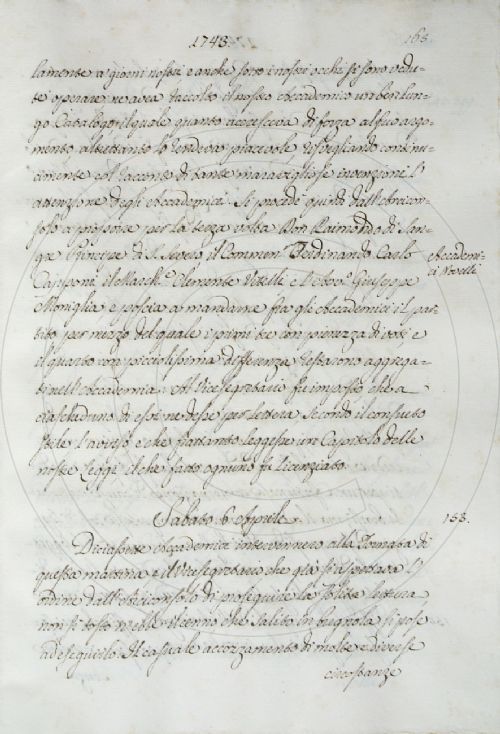 1743.
163.
lamente a' giorni nostri e anche sotto i nostri occhi si sono vedu-
te operare ne avea raccolto il nostro Accademico un ben lun-
go Catalogo, il quale quanto accresceva di forza al suo argo-
mento, altrettanto lo rendeva piacevole, risvegliando continu-
amente col racconto di tante maravigliose invenzioni l'
attenzione degli Accademici. Si procedè quindi dall'Arcicon-
solo a proporre per la terza volta Don Raimondo di San-
gro Principe di S. Severo il Commen.re Ferdinando Carlo
Capponi, il March.e Clemente Vitelli e l'Avv.o Giuseppe
Accademi-
ci Novelli
Moniglia e poscia a mandarne fra gli Accademici il par-
tito per mezzo del quale i primi tre con pienezza di voti e
il quarto con picciolissima differenza restarono aggrega-
ti nell'Accademia. Al Vicesegretario fu imposto che a
ciascheduno di essi ne desse per lettera secondo il consueto
stile l'avviso e che frattanto leggesse un Capitolo delle
nostre Leggi il che fatto ognuno fu licenziato.
Sabato 6 Aprile
153.
Diciassette Accademici intervennero alla Tornata di
questa mattina e il Vicesegretario che già si aspettava l'
ordine dall'Arciconsolo di proseguire la solita lettura
non sì tosto n'ebbe il cenno che salito in bugnola si pose
ad eseguirlo. Il casuale accozzamento di molte e diverse
circostanze